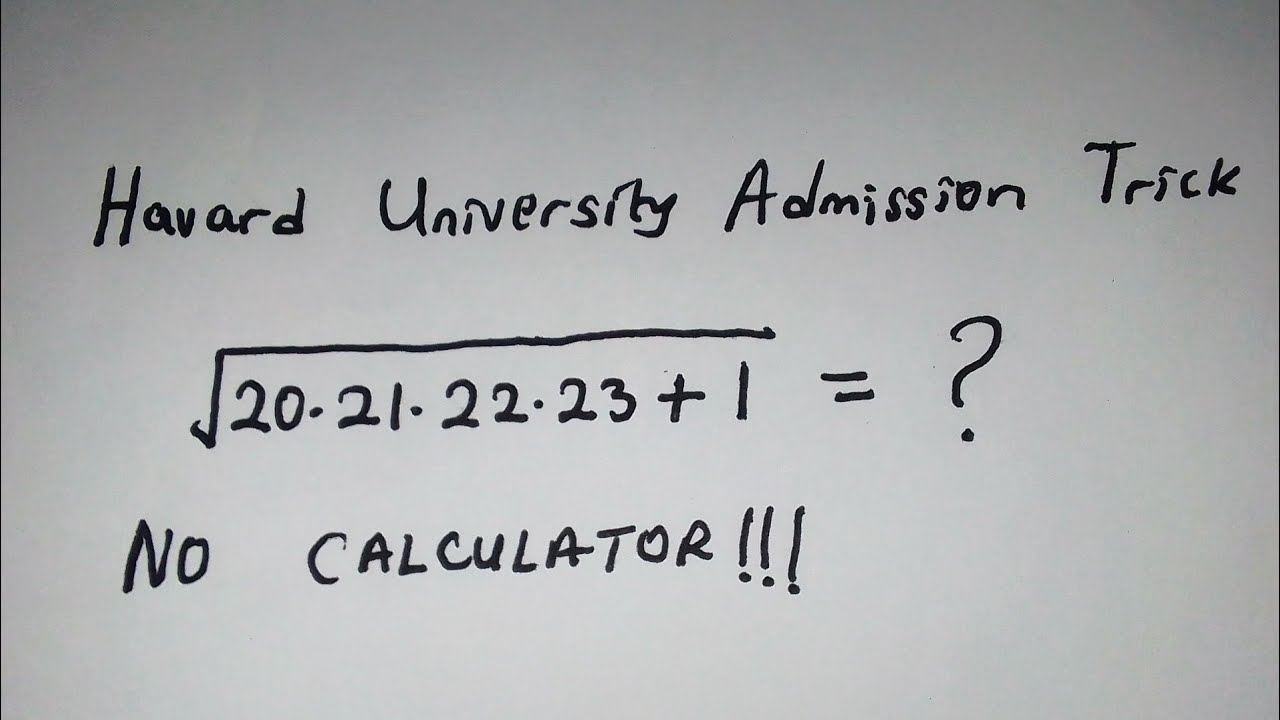 Havard University Admission Trick
√20·21·22·23+1 = ?
NO CALCULATOR!!!